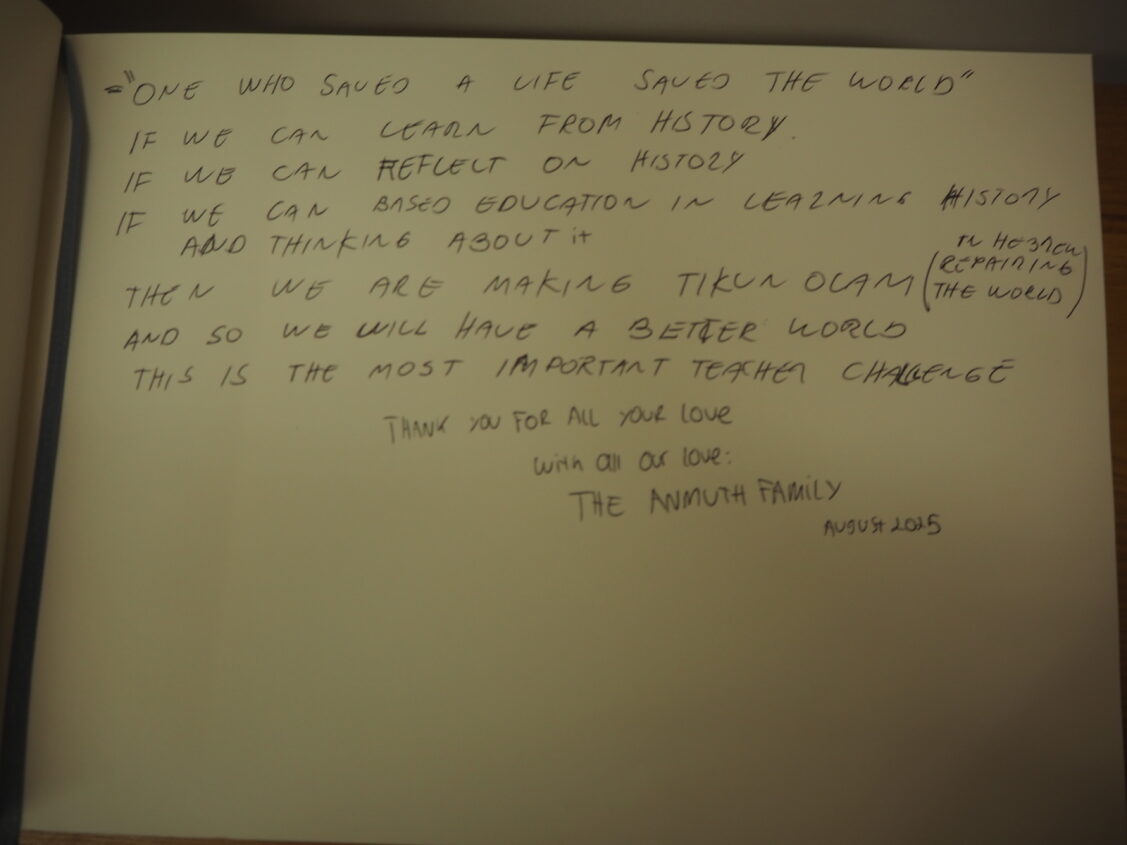 ="ONE WHO SAVED A LIFE SAVED THE WORLD"
IF WE CAN LEARN FROM HISTORY.
IF WE CAN REFLECT ON HISTORY
IF WE CAN BASED EDUCATION IN LEARNING HISTORY
AND THINKING ABOUT it
THEN WE ARE MAKING TIKUN OLAM (IN HEBREW
REPAIRING
THE WORLD)
AND SO WE WILL HAVE A BETTER WORLD
THIS IS THE MOST IMPORTANT TEACHER CHALLENGE
THANK YOU FOR ALL YOUR LOVE
with all our love:
THE ANMUTH FAMILY
AUGUST 2025